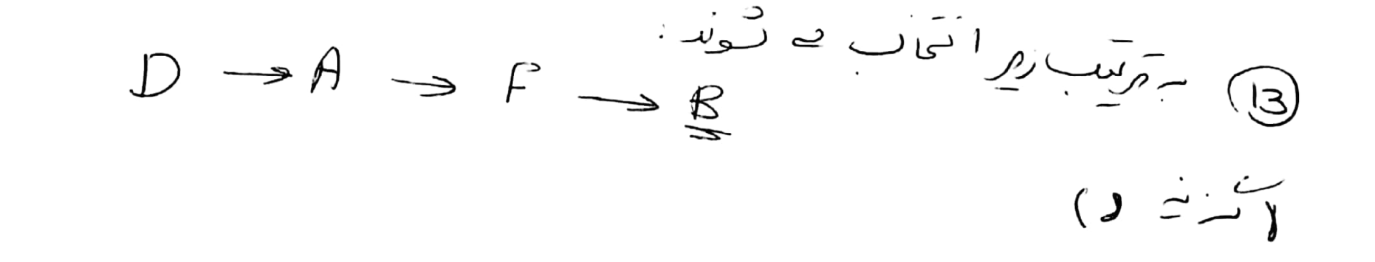 ۱۳ به ترتیب زیر انتخاب می شوند:
D → A → F → B
گزینه د)